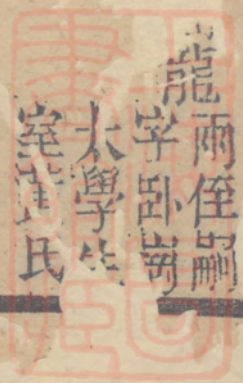 龍
雨侄嗣
字卧崗
太學生
室氏